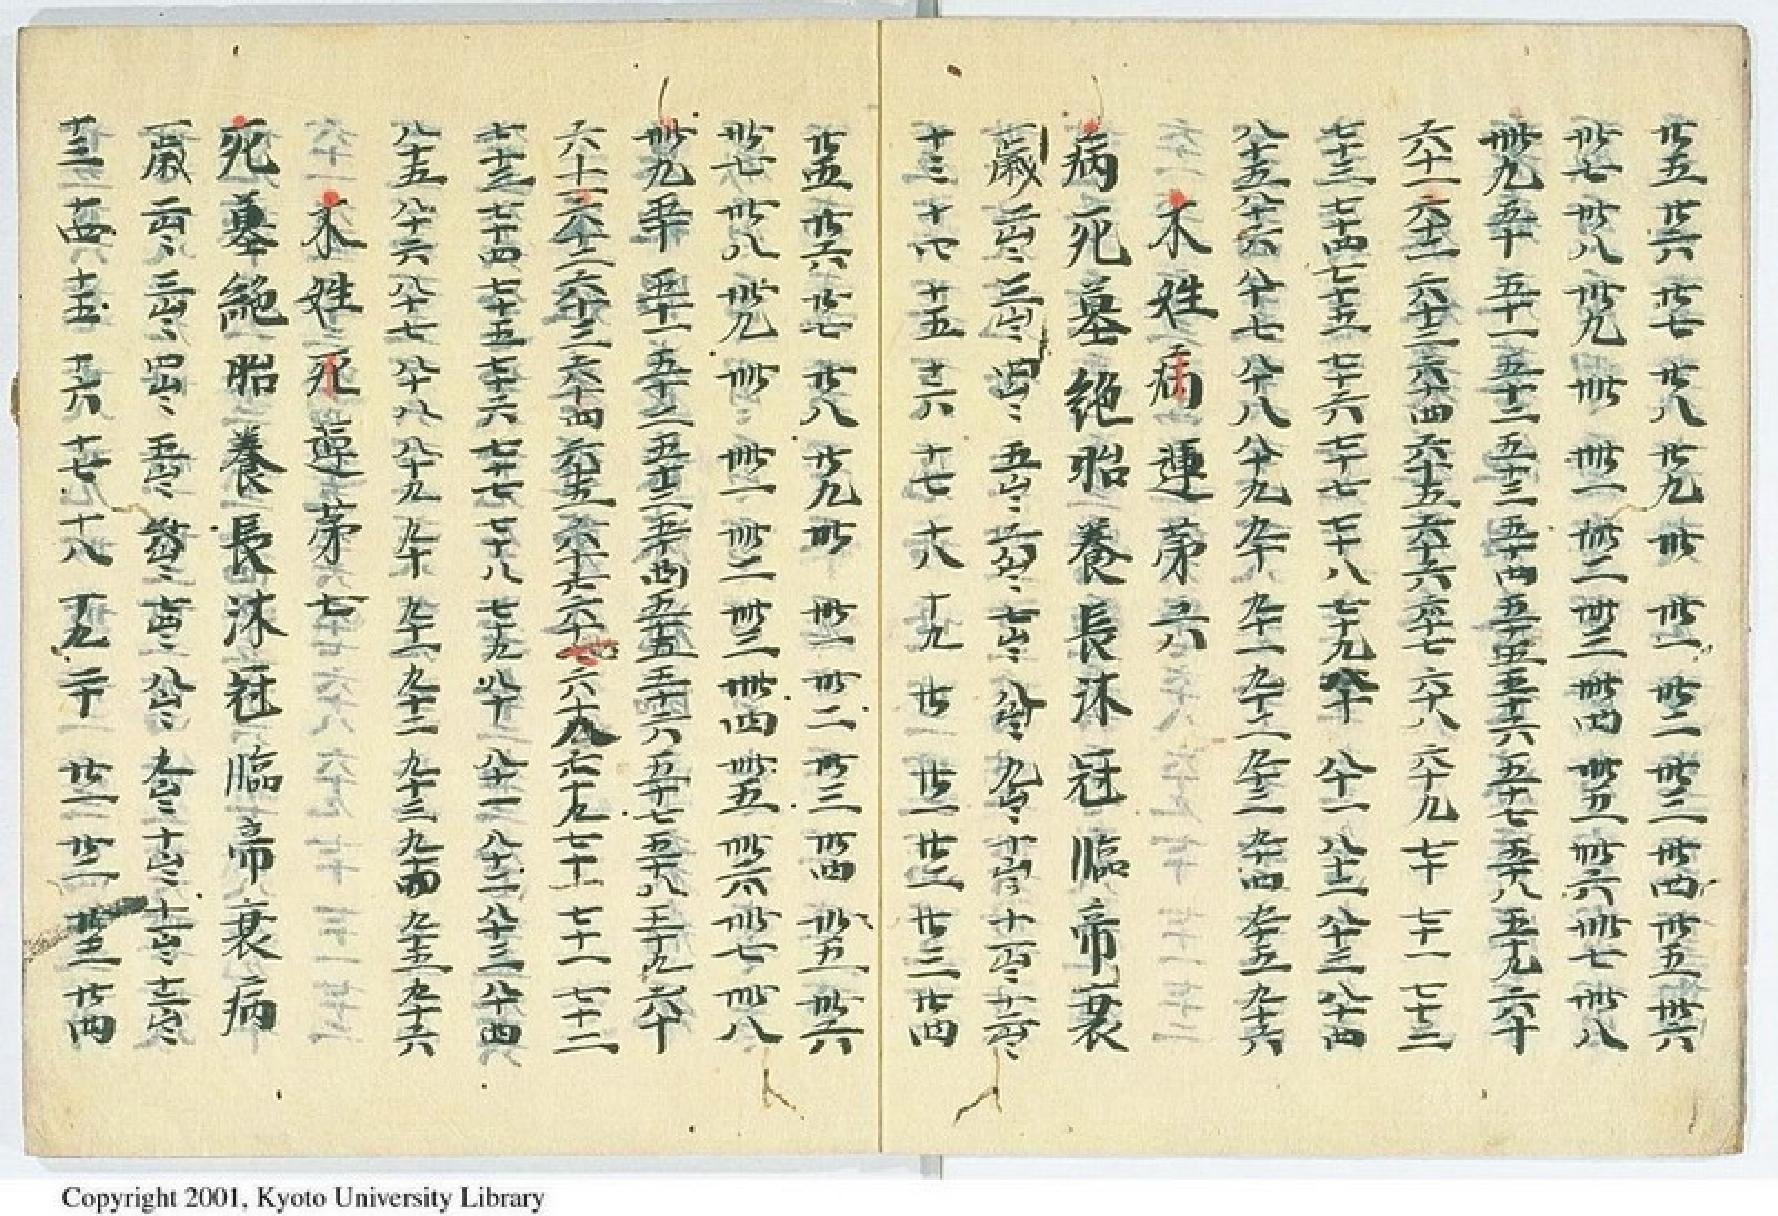 廿五 廿六 廿七 廿八 廿九 卅 卅一 卅二 卅三 卅四 卅五 卅六
卅七 卅八 卅九 卌 卌一 卌二 卌三 卌四 卌五 卌六 卌七 卌八
卌九 五十 五十一 五十二 五十三 五十四 五十五 五十六 五十七 五十八 五十九 六十
六十一 六十二 六十三 六十四 六十五 六十六 六十七 六十八 六十九 七十 七十一 七十二
七十三 七十四 七十五 七十六 七十七 七十八 七十九 八十 八十一 八十二 八十三 八十四
八十五 八十六 八十七 八十八 八十九 九十 九十一 九十二 九十三 九十四 九十五 九十六
木姓病運茅六
病死墓絶胎養長沐冠臨帝衰
一歳 二歳 三歳 四歳 五歳 六歳 七歳 八歳 九歳 十歳 十一歳 十二歳
十三 十四 十五 十六 十七 十八 十九 廿 廿一 廿二 廿三 廿四
廿五 廿六 廿七 廿八 廿九 卅 卅一 卅二 卅三 卅四 卅五 卅六
卅七 卅八 卅九 卌 卌一 卌二 卌三 卌四 卌五 卌六 卌七 卌八
卌九 五十 五十一 五十二 五十三 五十四 五十五 五十六 五十七 五十八 五十九 六十
六十一 六十二 六十三 六十四 六十五 六十六 六十七 六十九 七十 七十一 七十二
七十三 七十四 七十五 七十六 七十七 七十八 七十九 八十 八十一 八十二 八十三 八十四
八十五 八十六 八十七 八十八 八十九 九十 九十一 九十二 九十三 九十四 九十五 九十六
木姓死運茅七
死墓絶胎養長沐冠臨帝衰病
一歳 二歳 三歳 四歳 五歳 六歳 七歳 八歳 九歳 十歳 十一歳 十二歳
十三 十四 十五 十六 十七 十八 十九 二十 廿一 廿二 廿三 廿四
Copyright 2001, Kyoto University Library